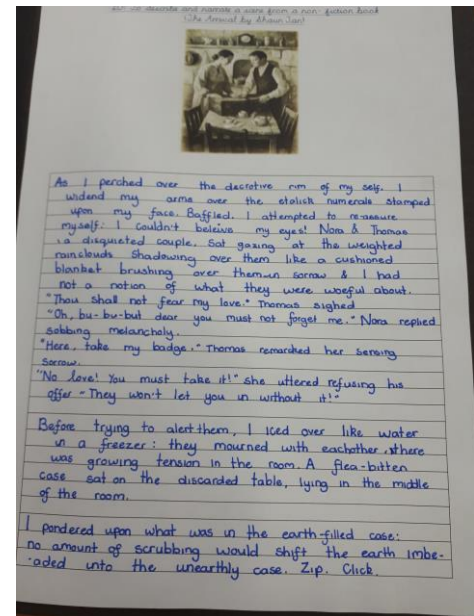 LO: To describe and narrate a scene from a non-fiction book
(The Arrival by Shaun Tan)
As I perched over the decrotive rim of my self. I
widend my arms over the etalick numerals stamped
upon my face. Baffled. I attempted to re-assure
myself: I couldn't beleive my eyes! Nora & Thomas
, a disquieted couple. Sat gazing at the weighted
rainclouds shadowing over them like a cushioned
blanket brushing over them in sorrow & I had
not a notion of what they were woeful about.
"Thou shall not fear my love." Thomas sighed
"Oh, bu-bu-but dear you must not forget me." Nora replied
sobbing melancholy.
"Here, take my badge." Thomas remarched her sensing
sorrow.
"No love! You must take it!" she uttered refusing his
offer - They won't let you in without it!"
Before trying to alert them, I iced over like water
in a freezer: they mourned with eachother, there
was growing tension in the room. A flea-bitten
case sat on the discarded table, lying in the middle
of the room.
I pondered upon what was in the earth-filled case:
no amount of scrubbing would shift the earth imbe-
-aded unto the unearthly case. Zip. Click.